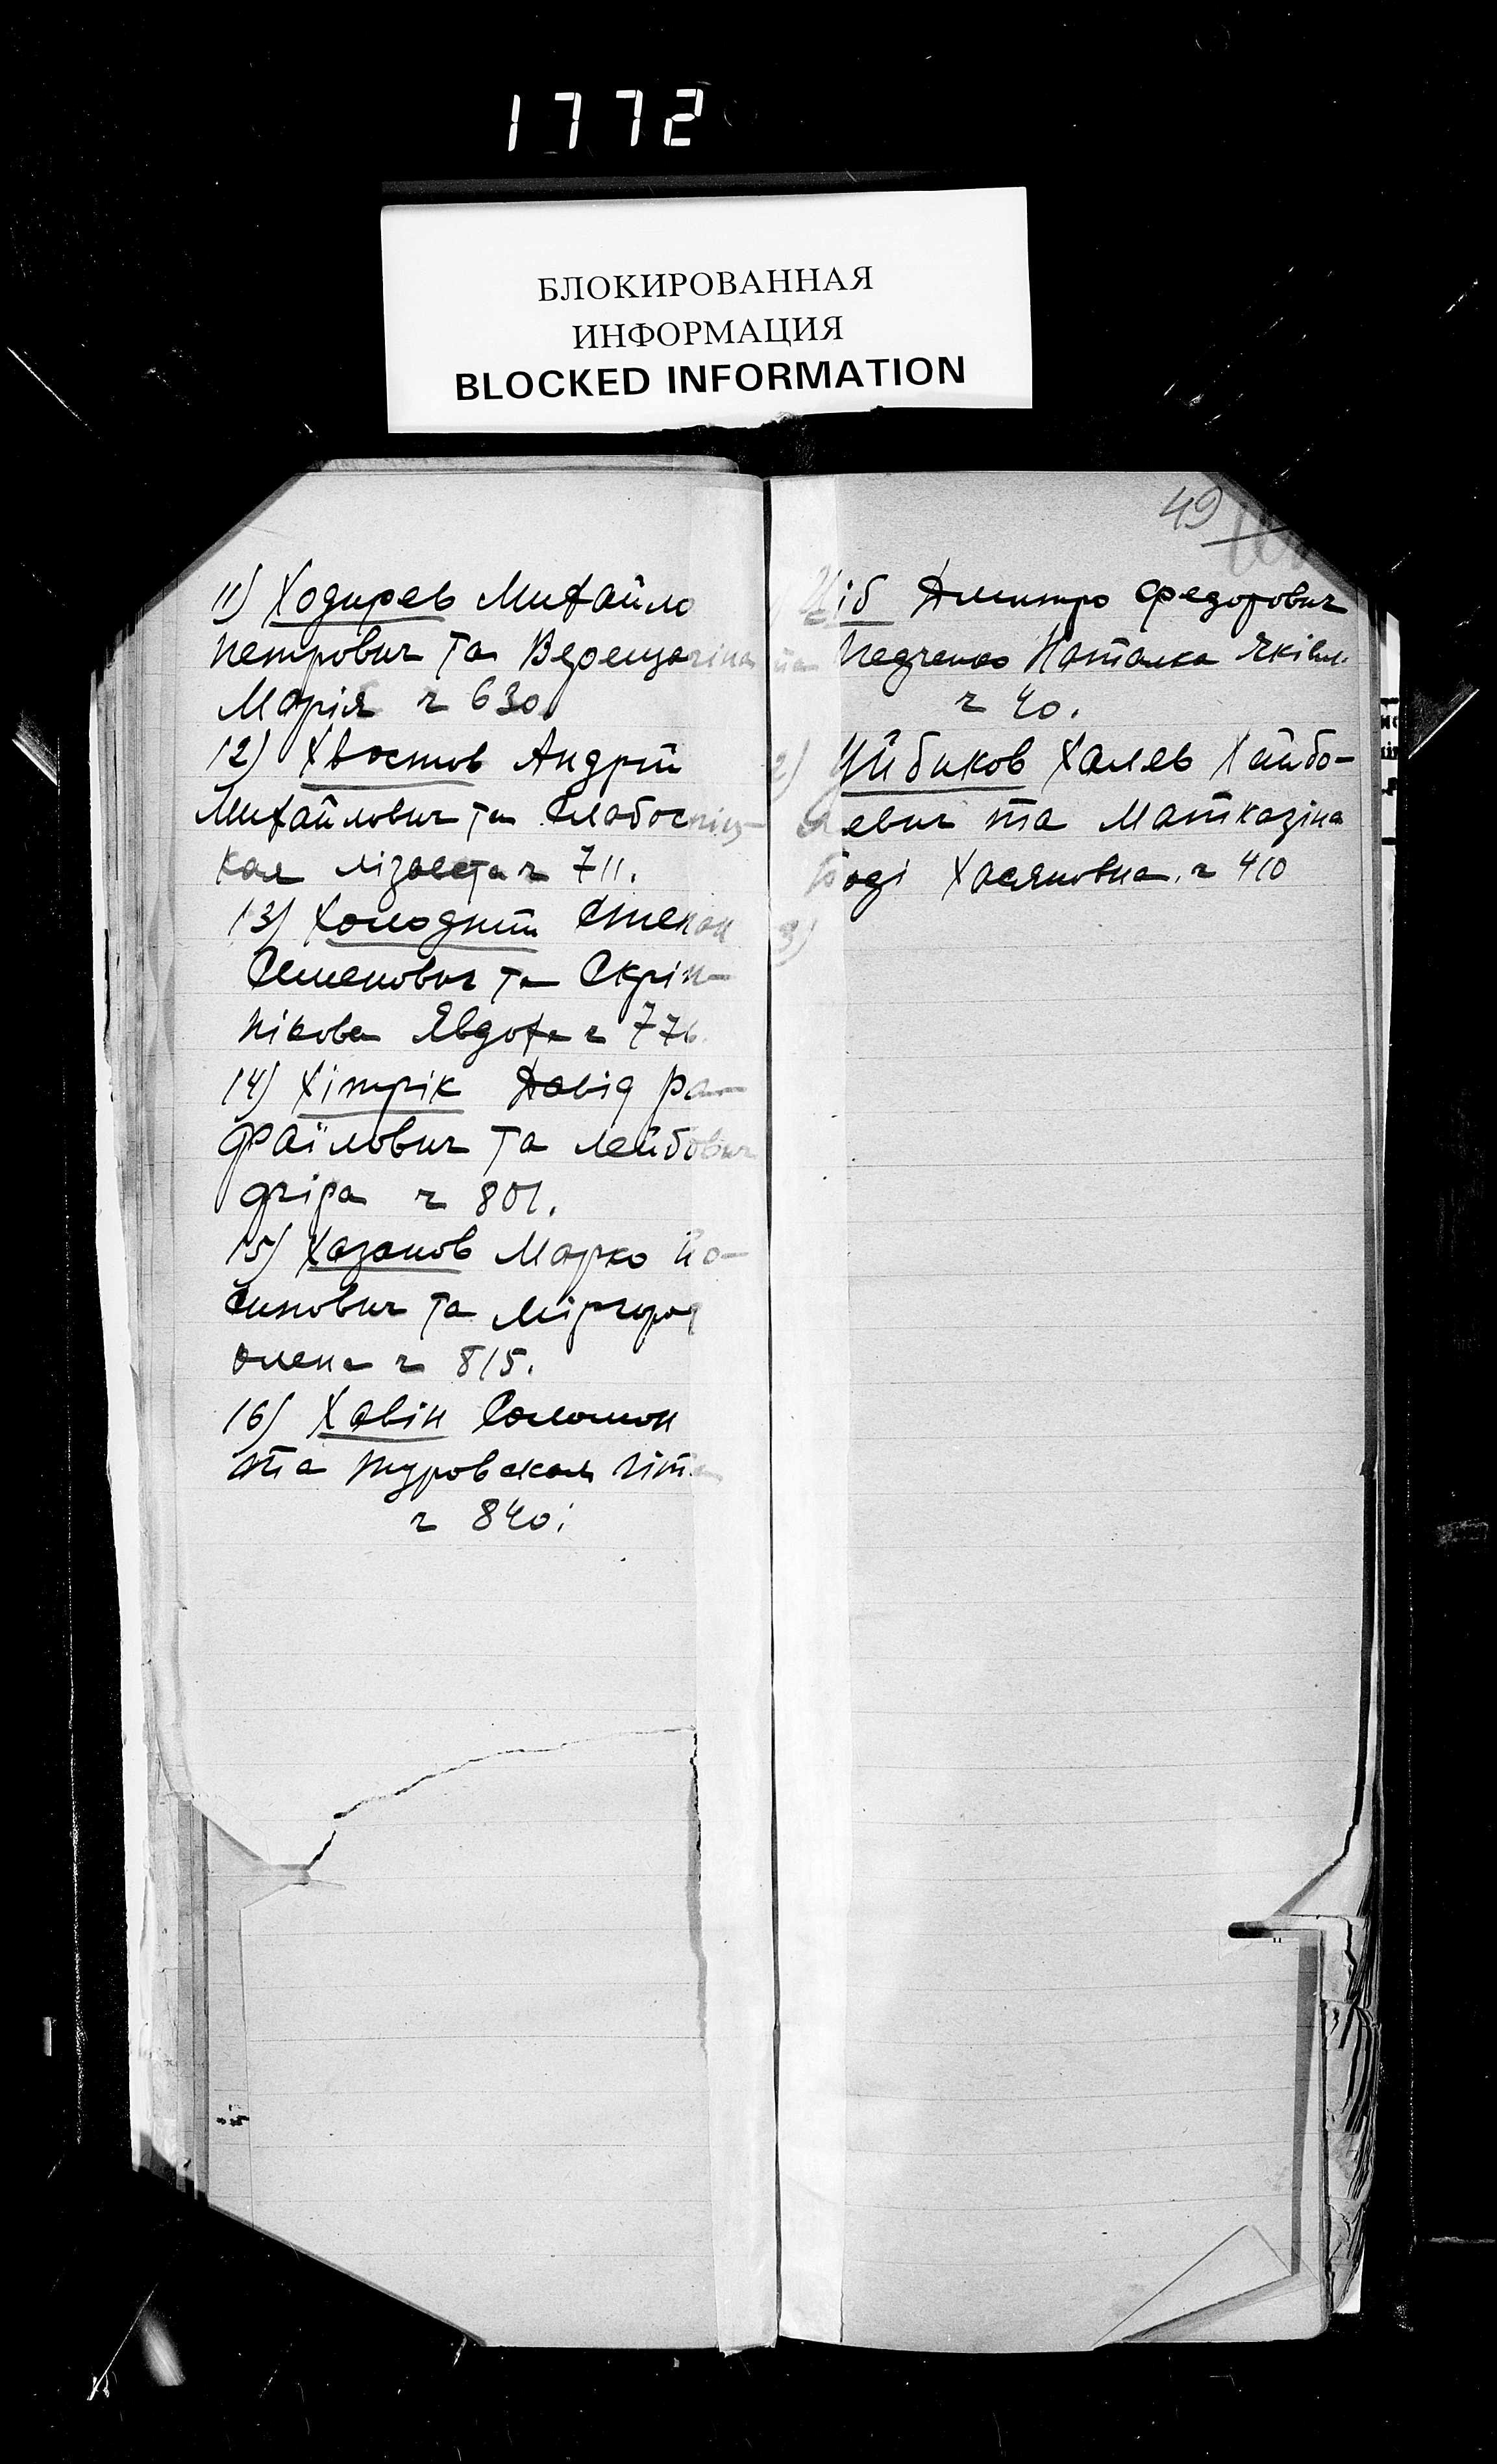 1772
БЛОКИРОВАННАЯ
ИНФОРМАЦИЯ
BLOCKED INFORMATION
11) Ходирев Михайло
Петрович та Верещагіна
Марія ч 630.
12) Хвостов Андрій
Михайлович та Слабоспіц-
кая Лізавета ч 711.
13) Холодний Степан
Семенович та Скріп-
нікова Явдоха ч 776.
14) Хітрік Давід Ра-
фаїлович та Лейбович
ч 801.
15) Хазанов Марко Йо-
сипович та Міргород
Олена ч 815.
16) Хавін Соломон
та Туровская Гіта
ч 840.
49
Ціб Дмитро Федорович
та Педченко Наталка Яківл.
ч 40.
2) Халев Хайбо-
евич та Матказіна
Хасяновна ч 410
3)